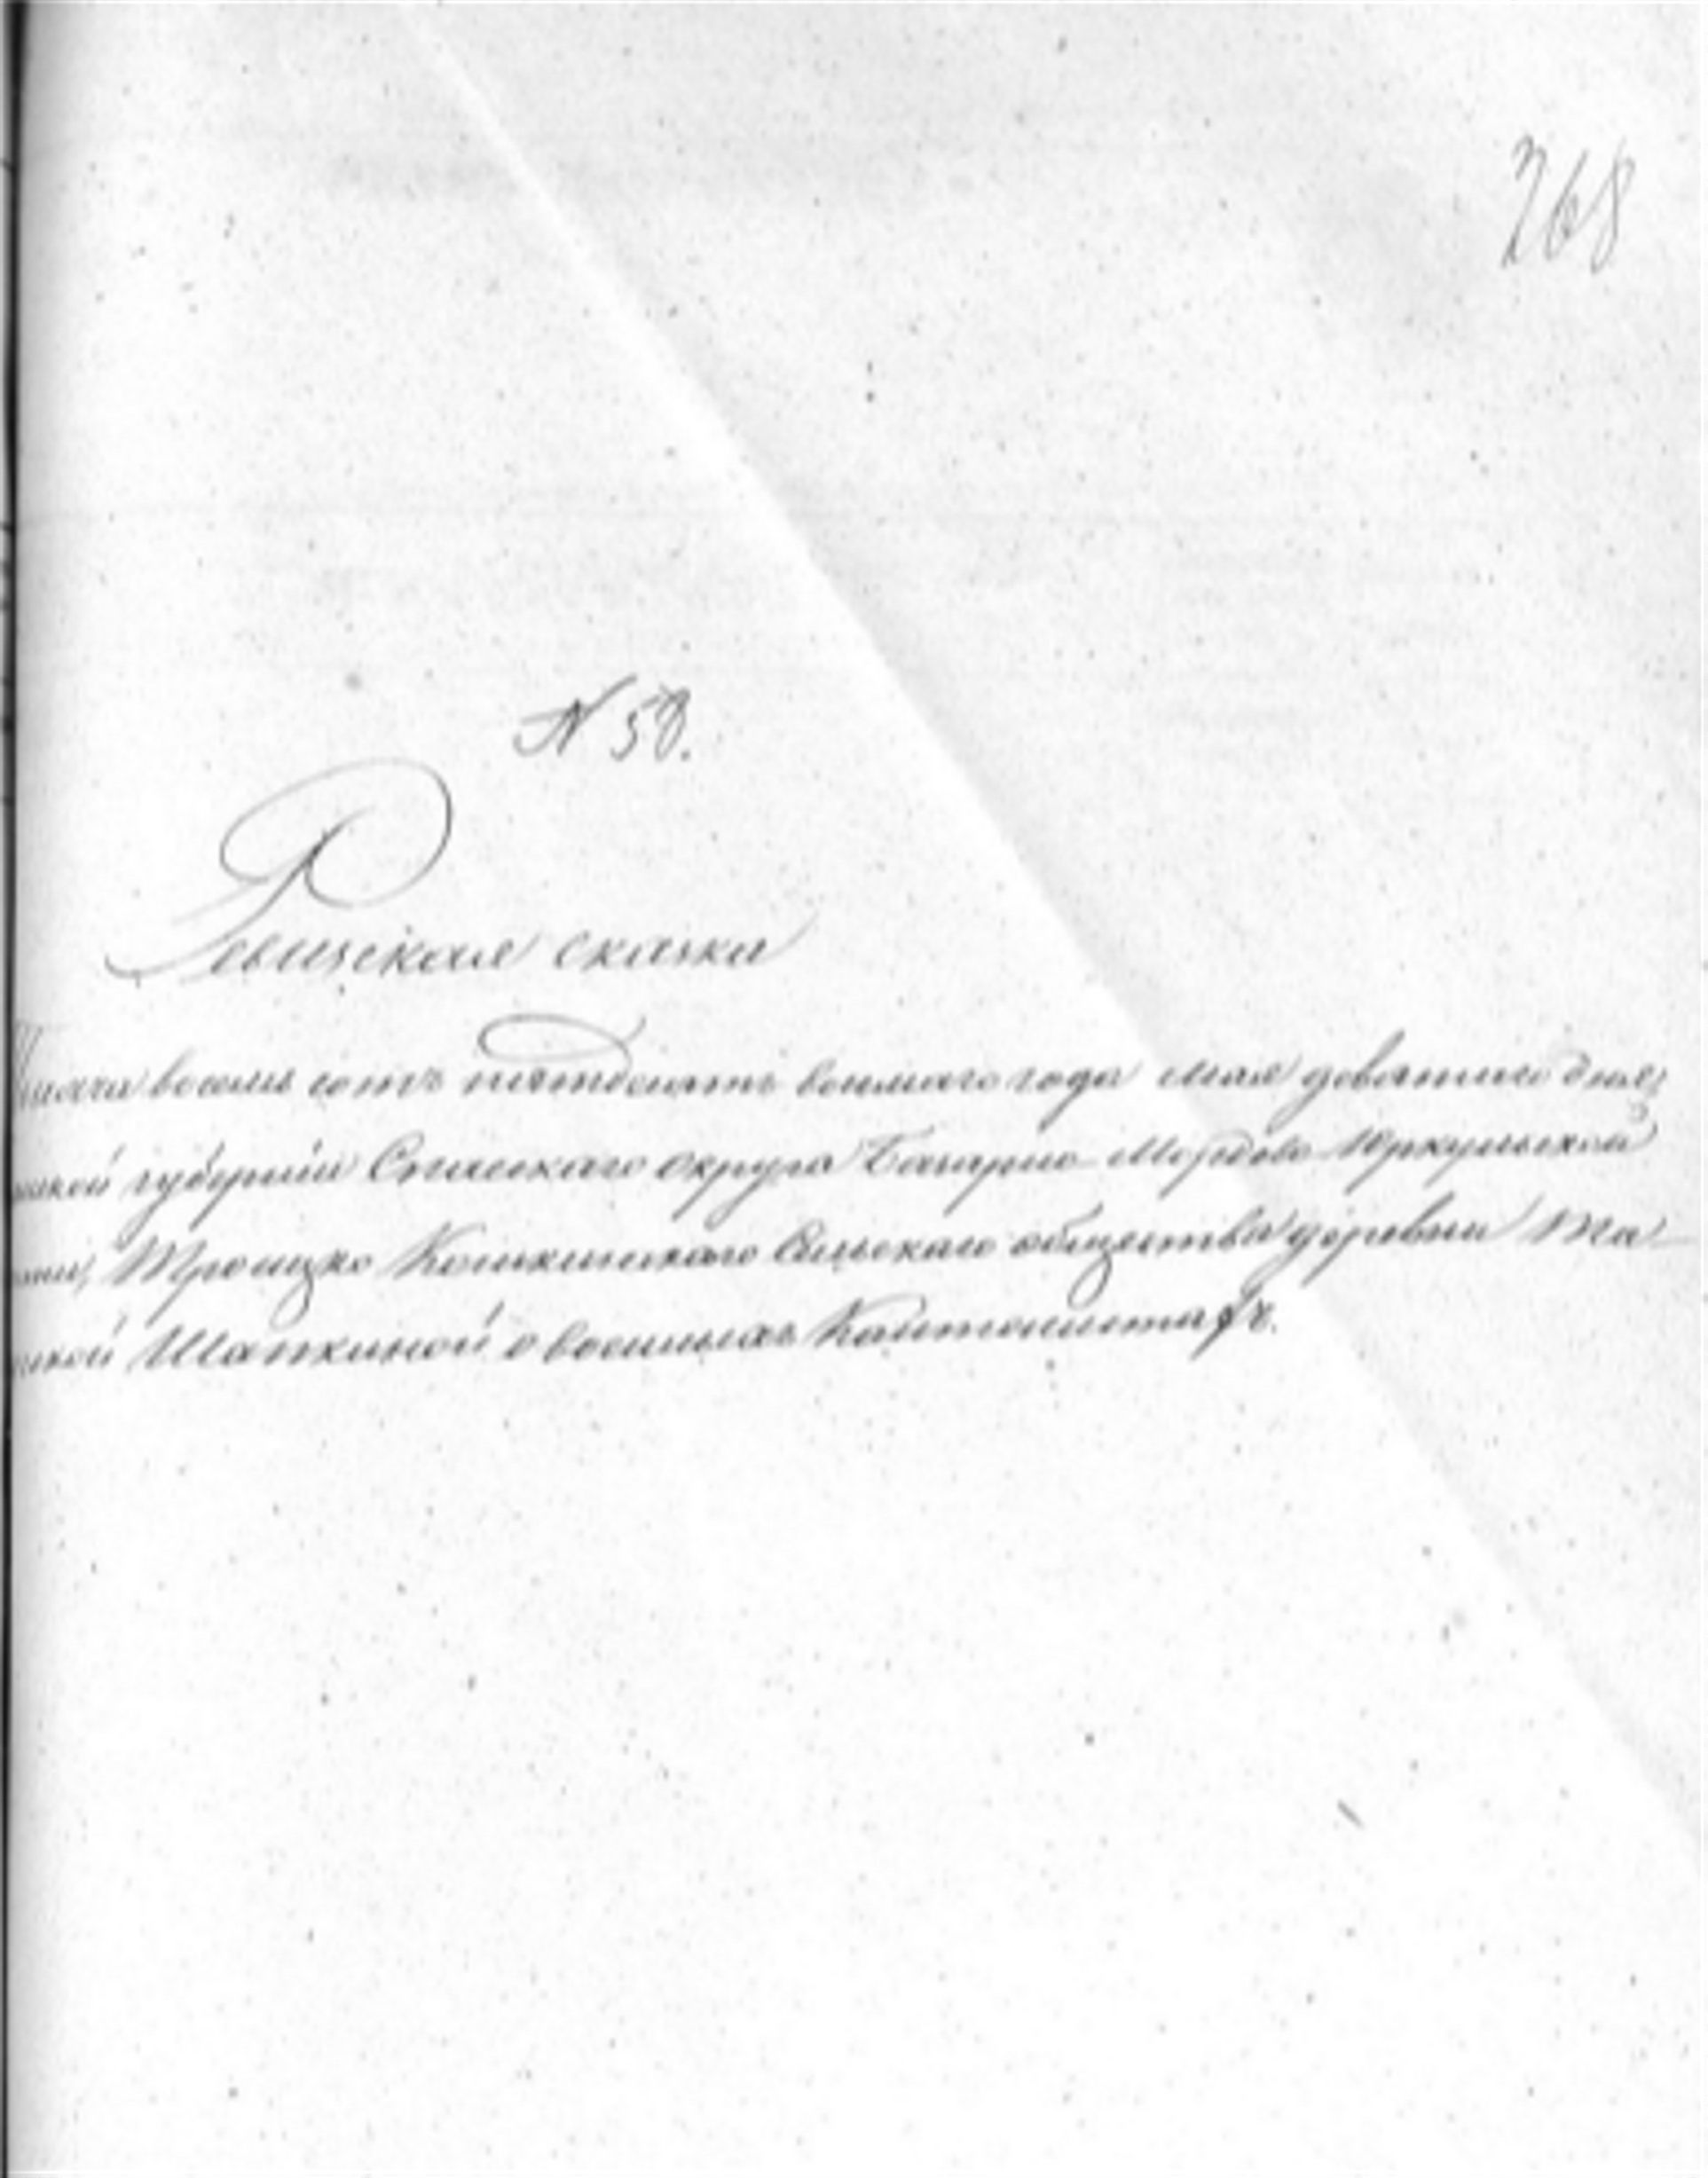 268
N 58.
Ревизская сказка
восемь сотъ пятьдесятъ восьмаго года мая девятаго дня,
губернии Спасскаго округа Базарно Мордово Юркульской
Троицко Кошкинскаго Сельскаго общества деревни Та-
Шапкиной о военныхъ Кантонистахъ.